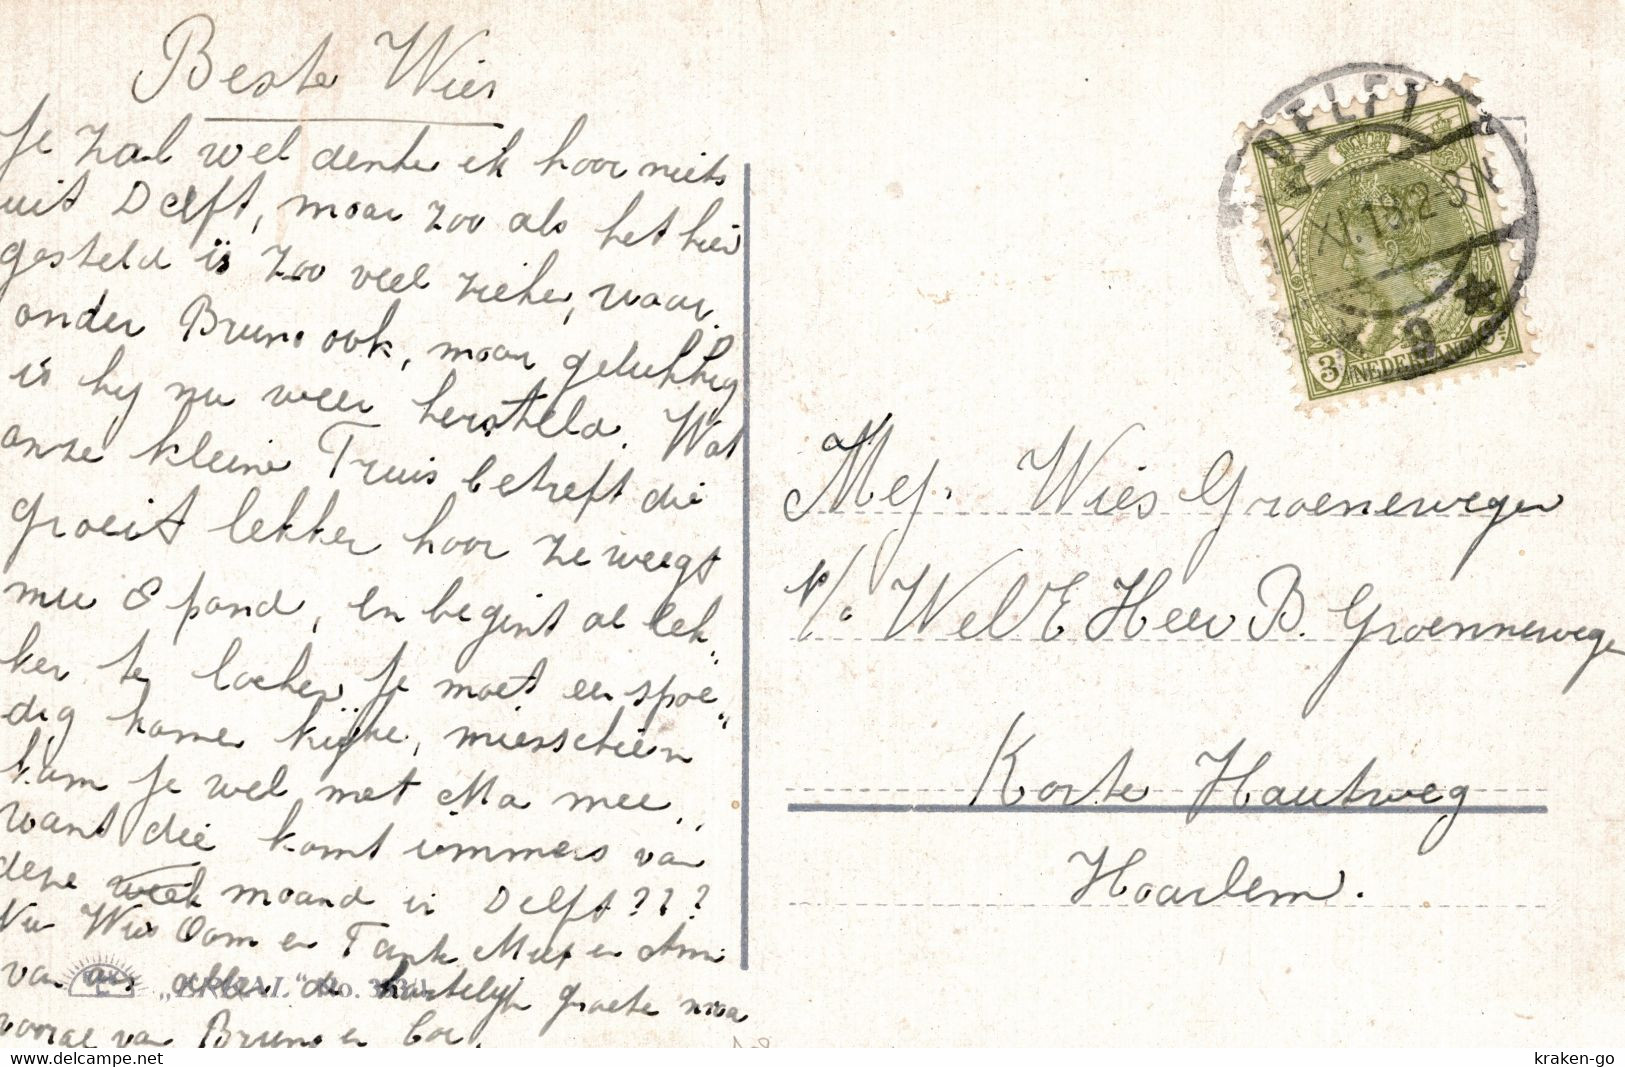 Beste Wies
Je zal wel denke ik hoor niets
uit Delft, maar zoo als het hier
gesteld is zoo veel zieke, waar
onder Bruno ook, maar gelukkig
is hij nu weer hersteld. Wat
onze kleine Truus betreft die
groeit lekker hoor ze weegt
nu 8 pond, en begint al lek„
ker te lachen. Je moet eens spoe„
dig kome kijke, misschien
kom je wel met Ma mee,
want die komt immers van
deze week maand in Delft???
Nu Wies Oom en Tante en
van ons allen de hartelijk groete
vooral van Bruno en Cor.
"ERKAL" No.
DELFT
17.XI.18.2-3
* 9 *
3 NEDERLAND
Mej. Wies Groenewegen
p/a WelE Heer B. Groennewegen
Korte Houtweg
Haarlem.
kraken-go